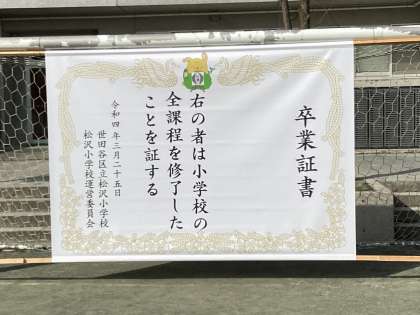 卒業証書
右の者は小学校の
全課程を修了した
ことを証する
令和四年三月二十五日
世田谷区立松沢小学校
松沢小学校運営委員会